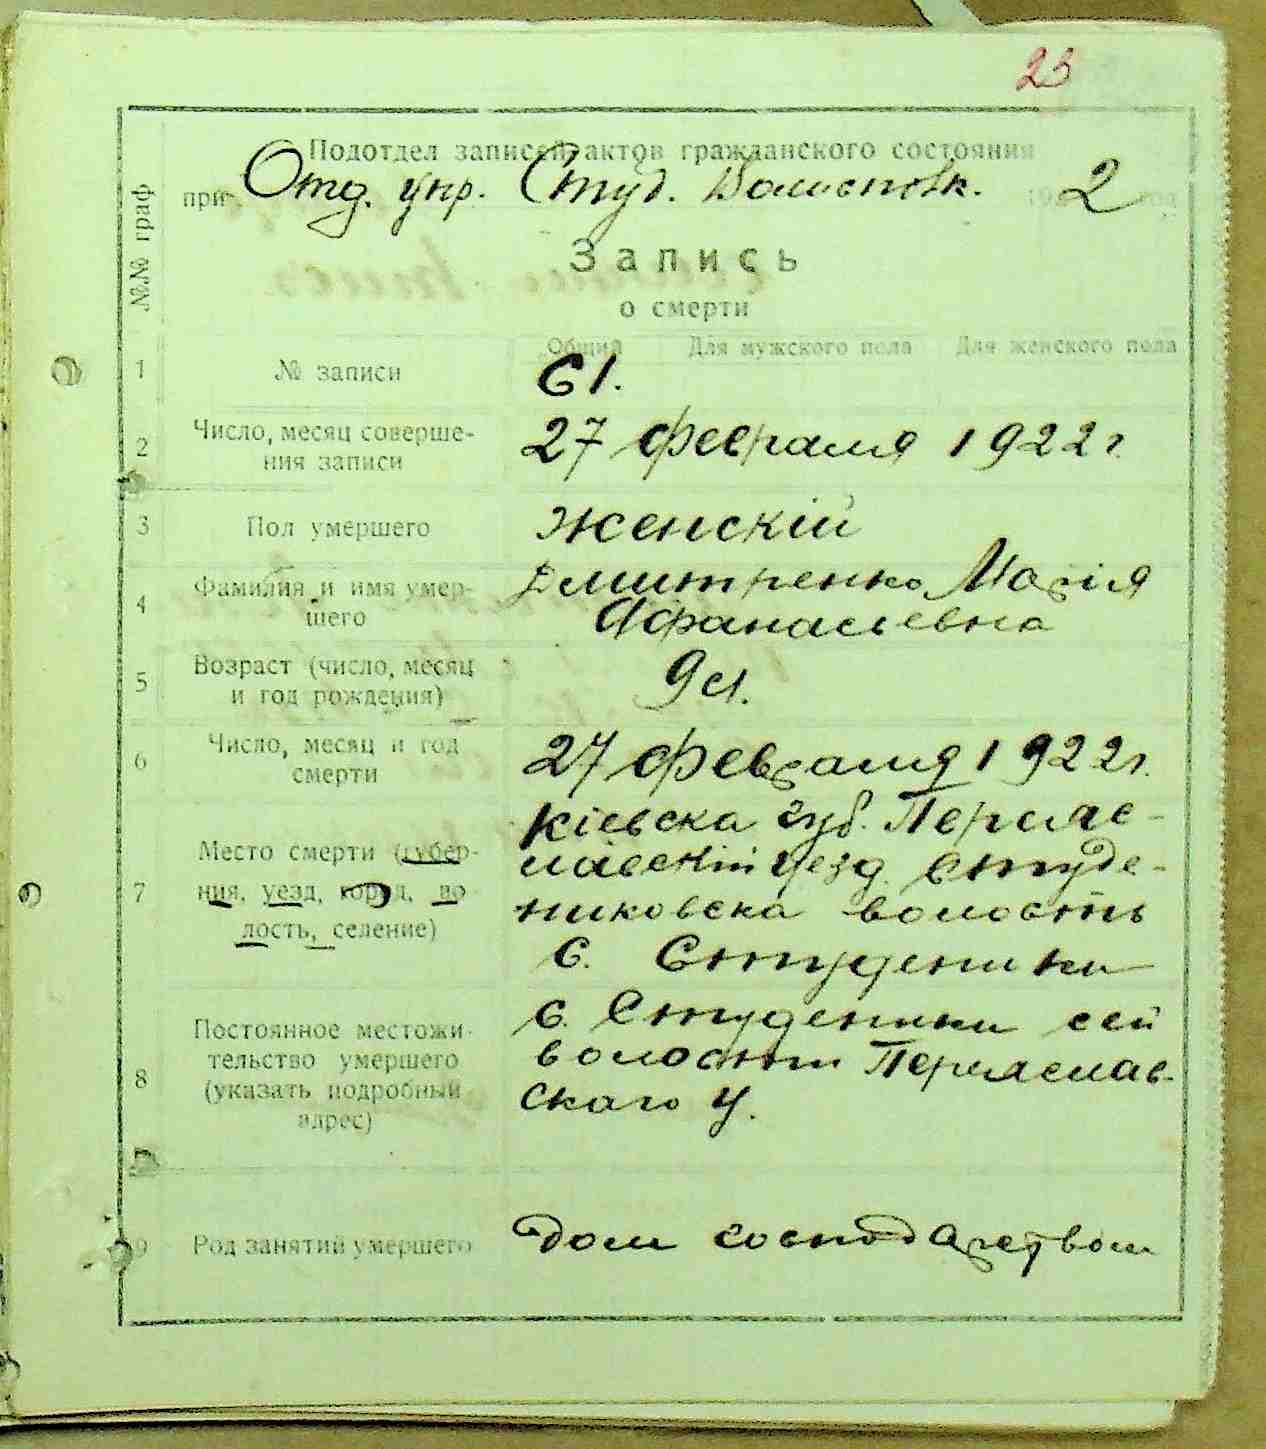 23
Подотдел записей актов гражданского состояния
при Отд. упр. Студ. Волисполк. 1922 год
№№ граф
Запись
о смерти
Общий Для мужского пола Для женского пола
1 № записи 61.
2 Число, месяц соверше-
ния записи 27 февраля 1922 г.
3 Пол умершего женскій
4 Фамилия и имя умер-
шего Дмитренко Марія
Афанасьевна
5 Возраст (число, месяц
и год рождения) 9 л.
6 Число, месяц и год
смерти 27 февраля 1922 г.
7 Место смерти (губер-
ния, уезд, город, во-
лость, селение)
Кіевска губ. Переяс-
лавскій уезд. Студе-
никовска волость
с. Студеники
8 Постоянное местожи-
тельство умершего
(указать подробный
адрес)
с. Студеники сей
волости Переяслав-
скаго у.
9 Род занятий умершего дом господарством